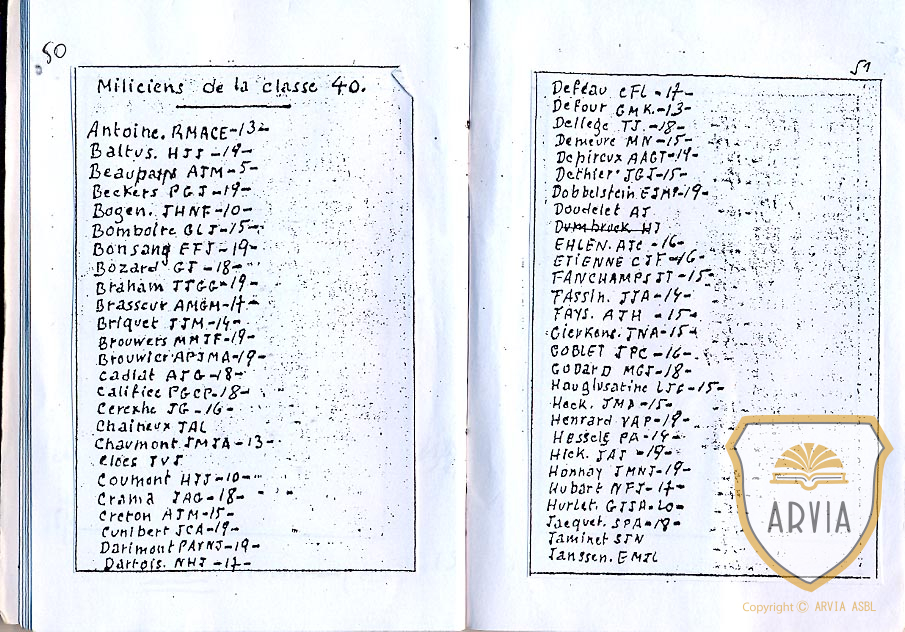 50
Miliciens de la classe 40.
Antoine. RMACE-13-
Baltus. HJJ -19-
Beaupain AJM-5-
Beckers PGJ-19-
Bogen. JHNF-10-
Bomboire GLJ-15-
Bonsang EFJ-19-
Bozard GJ-18-
Braham JJGG-19-
Brasseur AMGM-17-
Briquet JJM-14-
Brouwers MMJF-19-
Brouwier APJMA-19-
Cadiat AJG-18-
Califice PGCP-18-
Cerexhe JG-16-
Chaineux JAL
Chaumont JMJA-13-
Cloes JVJ
Coumont HJJ-10-
Crama JAG-18-
Creton AJM-15-
Cunibert JCA-19-
Darimont PAYNJ-19-
Dartois. NHJ-17-
51
Defeau CFL-17-
Defour GMK-13-
Dellege TJ.-18-
Demeure MN-15-
Depireux AAGJ-19-
Dethier JGJ-15-
Dobbelstein EJMP-19-
Doudelet AJ
Dumbruck HJ
EHLEN. AJC-16-
ETIENNE CJF-16-
FANCHAMPS JT-15-
FASSIN. JJA-14-
FAYS. AJH -15-
Gierkens. JNA-15-
GOBLET JPC-16-
GODARD MGJ-18-
Hauglustaine LJG-15-
Heck. JMD-15-
Henrard VAP-19-
Hessels PA-14-
Hick. JAJ-19-
Honnay JMNJ-19-
Hubart NFJ-17-
Hurlet. GJJA-20-
Jacquet. SPA-18-
Jaminet SJN
Janssen. EMJL
ARVIA
Copyright © ARVIA ASBL